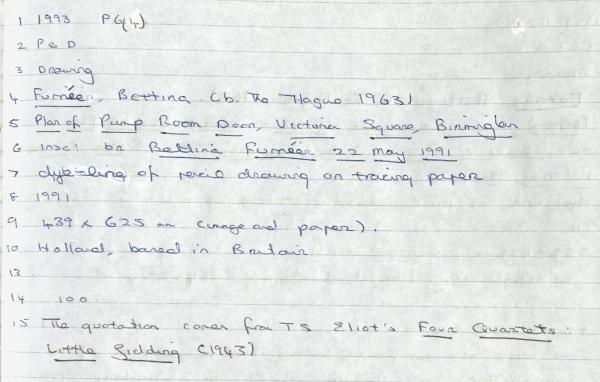 1 1993 PG(4)
2 P & D
3 Drawing
4 Furnéer, Bettina (b. The Hague 1963)
5 Plan of Pump Room Door, Victoria Square, Birmingham
6 insc: br Bettina Furnéer 22 May 1991
7 dyeline of pencil drawing on tracing paper
8 1991
9 439 x 625 mm (image and paper).
10 Holland, based in Britain
13
14 100.
15 The quotation comes from TS Eliot's Four Quartets:
Little Gidding (1943)